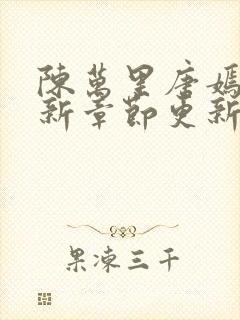 陳萬里唐嫣
新章節更新
果凍三千